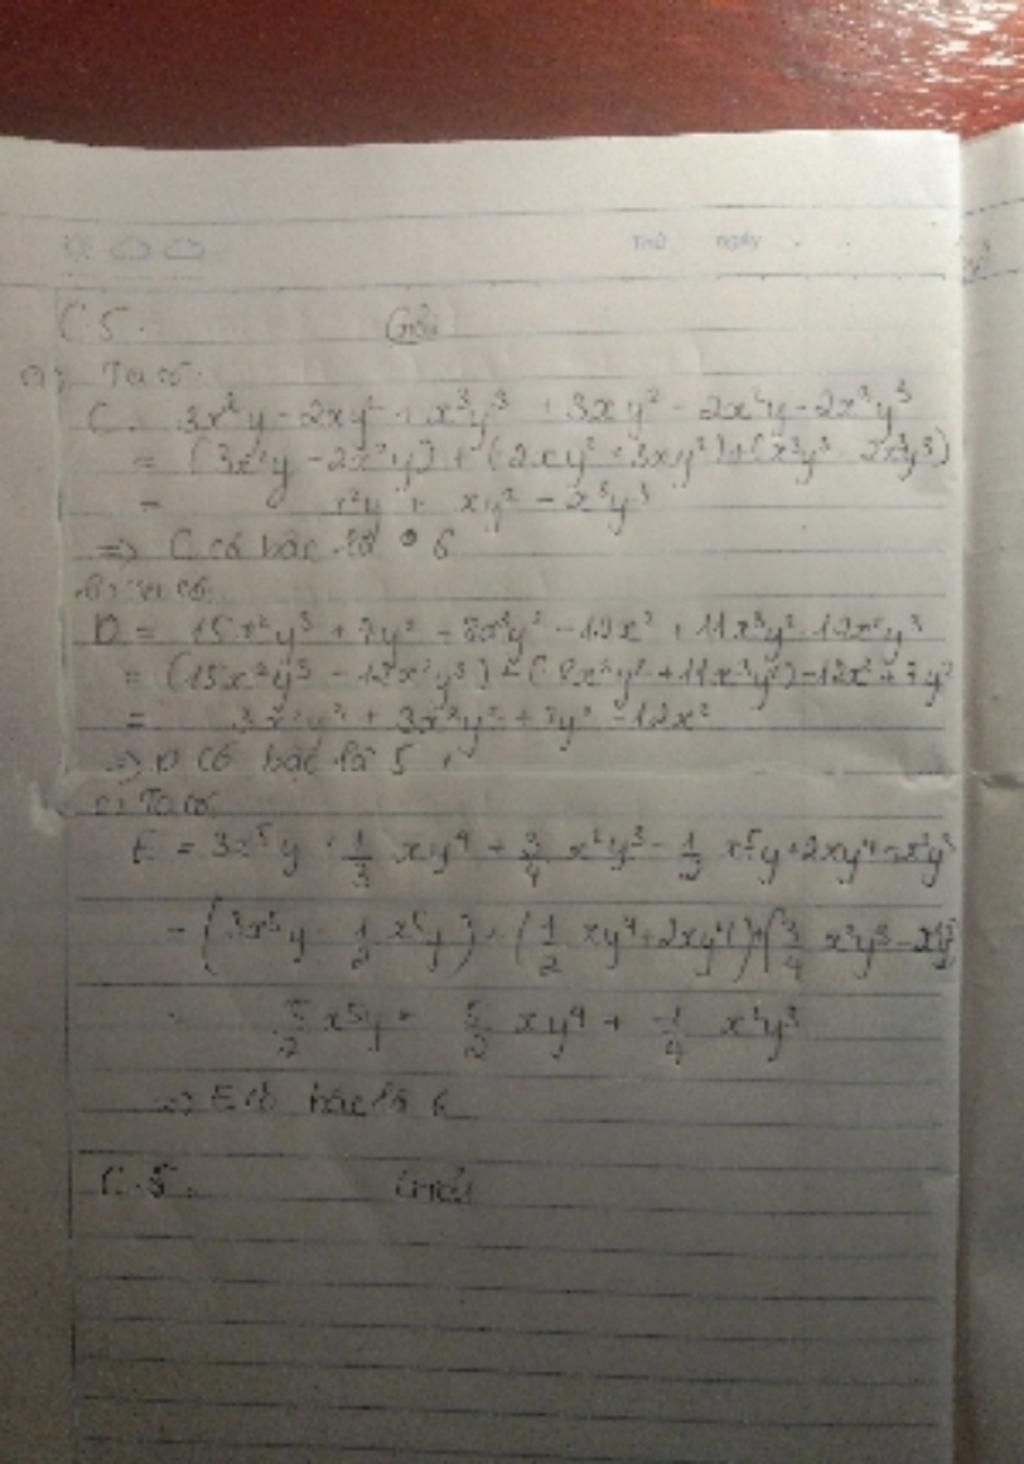 Thứ ngày
C.5. Giải
a) Ta có:
C = 3x²y - 2xy² + x³y³ + 3xy² - 2x²y - 2x³y³
= (3x²y - 2x²y) + (-2xy² + 3xy²) + (x³y³ - 2x³y³)
= x²y + xy² - x³y³
=> C có bậc là 6
b) Ta có:
D = 15x²y³ + 7y² - 8x³y² - 12x² + 11x³y² - 12x²y³
= (15x²y³ - 12x²y³) + (-8x³y² + 11x³y²) - 12x² + 7y²
= 3x²y³ + 3x³y² + 7y² - 12x²
=> D có bậc là 5
c) Ta có
E = 3x⁵y + 1/3 xy⁴ + 3/4 x²y³ - x⁵y + 2xy⁴ - x²y³
= (3x⁵y - 1/2 x⁵y) + (1/2 xy⁴ + 2xy⁴) + (3/4 x²y³ - x²y³)
= 5/2 x⁵y + 5/2 xy⁴ + -1/4 x²y³
=> E có bậc là 6
C.5. Giải